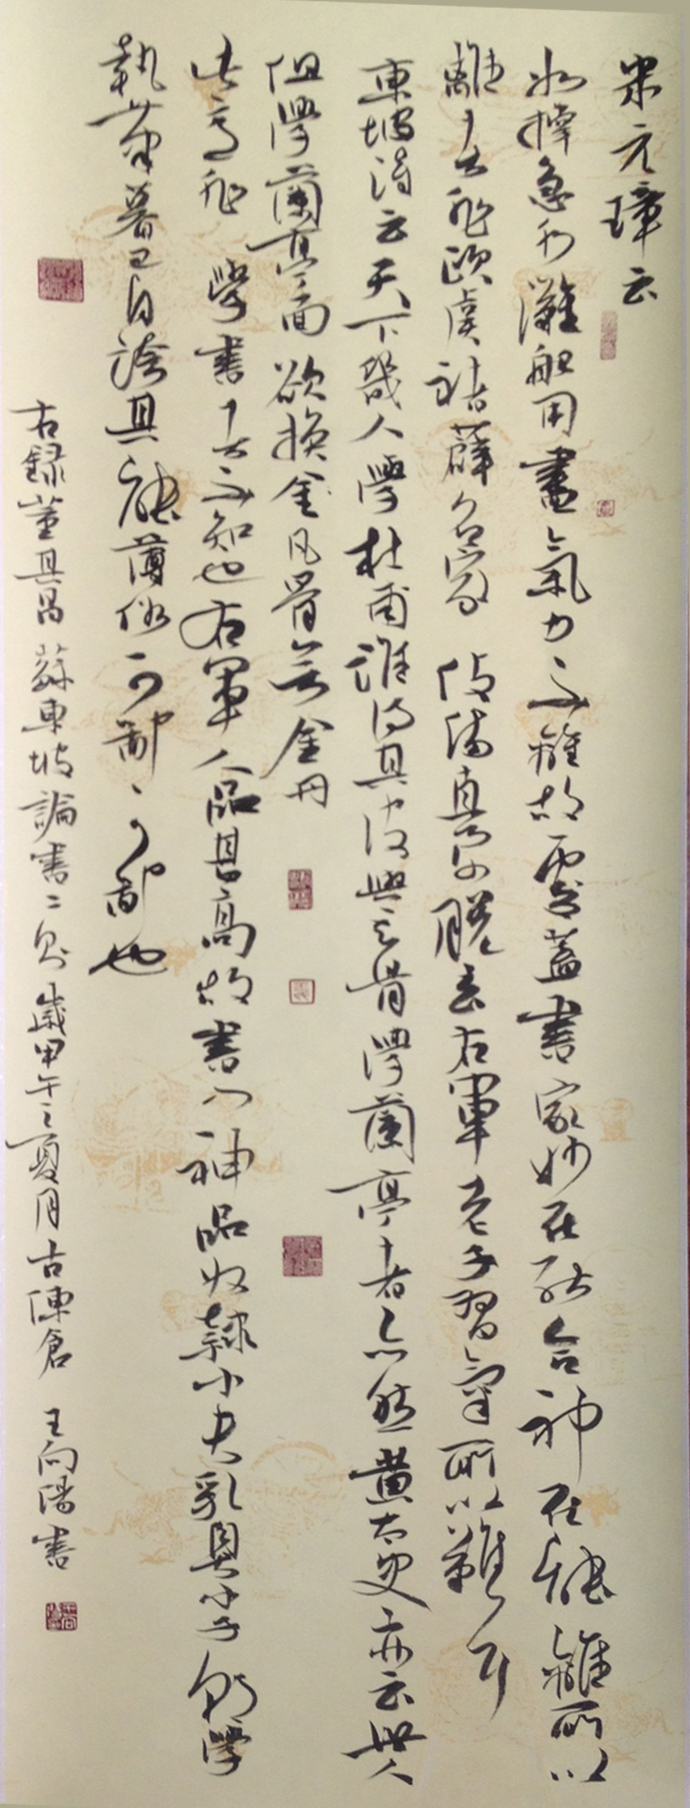 米元璋云
如撑急水灘船用盡氣力不離故處蓋書家妙在能合神在能離所以
離古非歐虞褚薛名家伎倆直要脫去右軍老子習氣所以難耳
東坡詩云天下幾人學杜甫誰得其皮與其骨學蘭亭者亦然黃太史亦云世人
但學蘭亭面欲換金凡骨無金丹
此意非學書十古不知也右軍人品甚高故書入神品奴隸小夫乳臭小子朝學
執筆暮已自誇其能薄俗可鄙可鄙也
古錄董其昌蘇東坡論書二則歲甲午之夏月古陳倉王向陽書